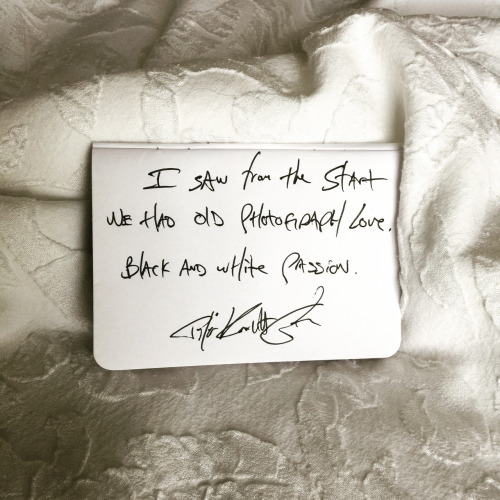 I SAW from the START
WE HAD OLD PHOTOGRAPH LOVE.
BLACK AND WHITE PASSION.